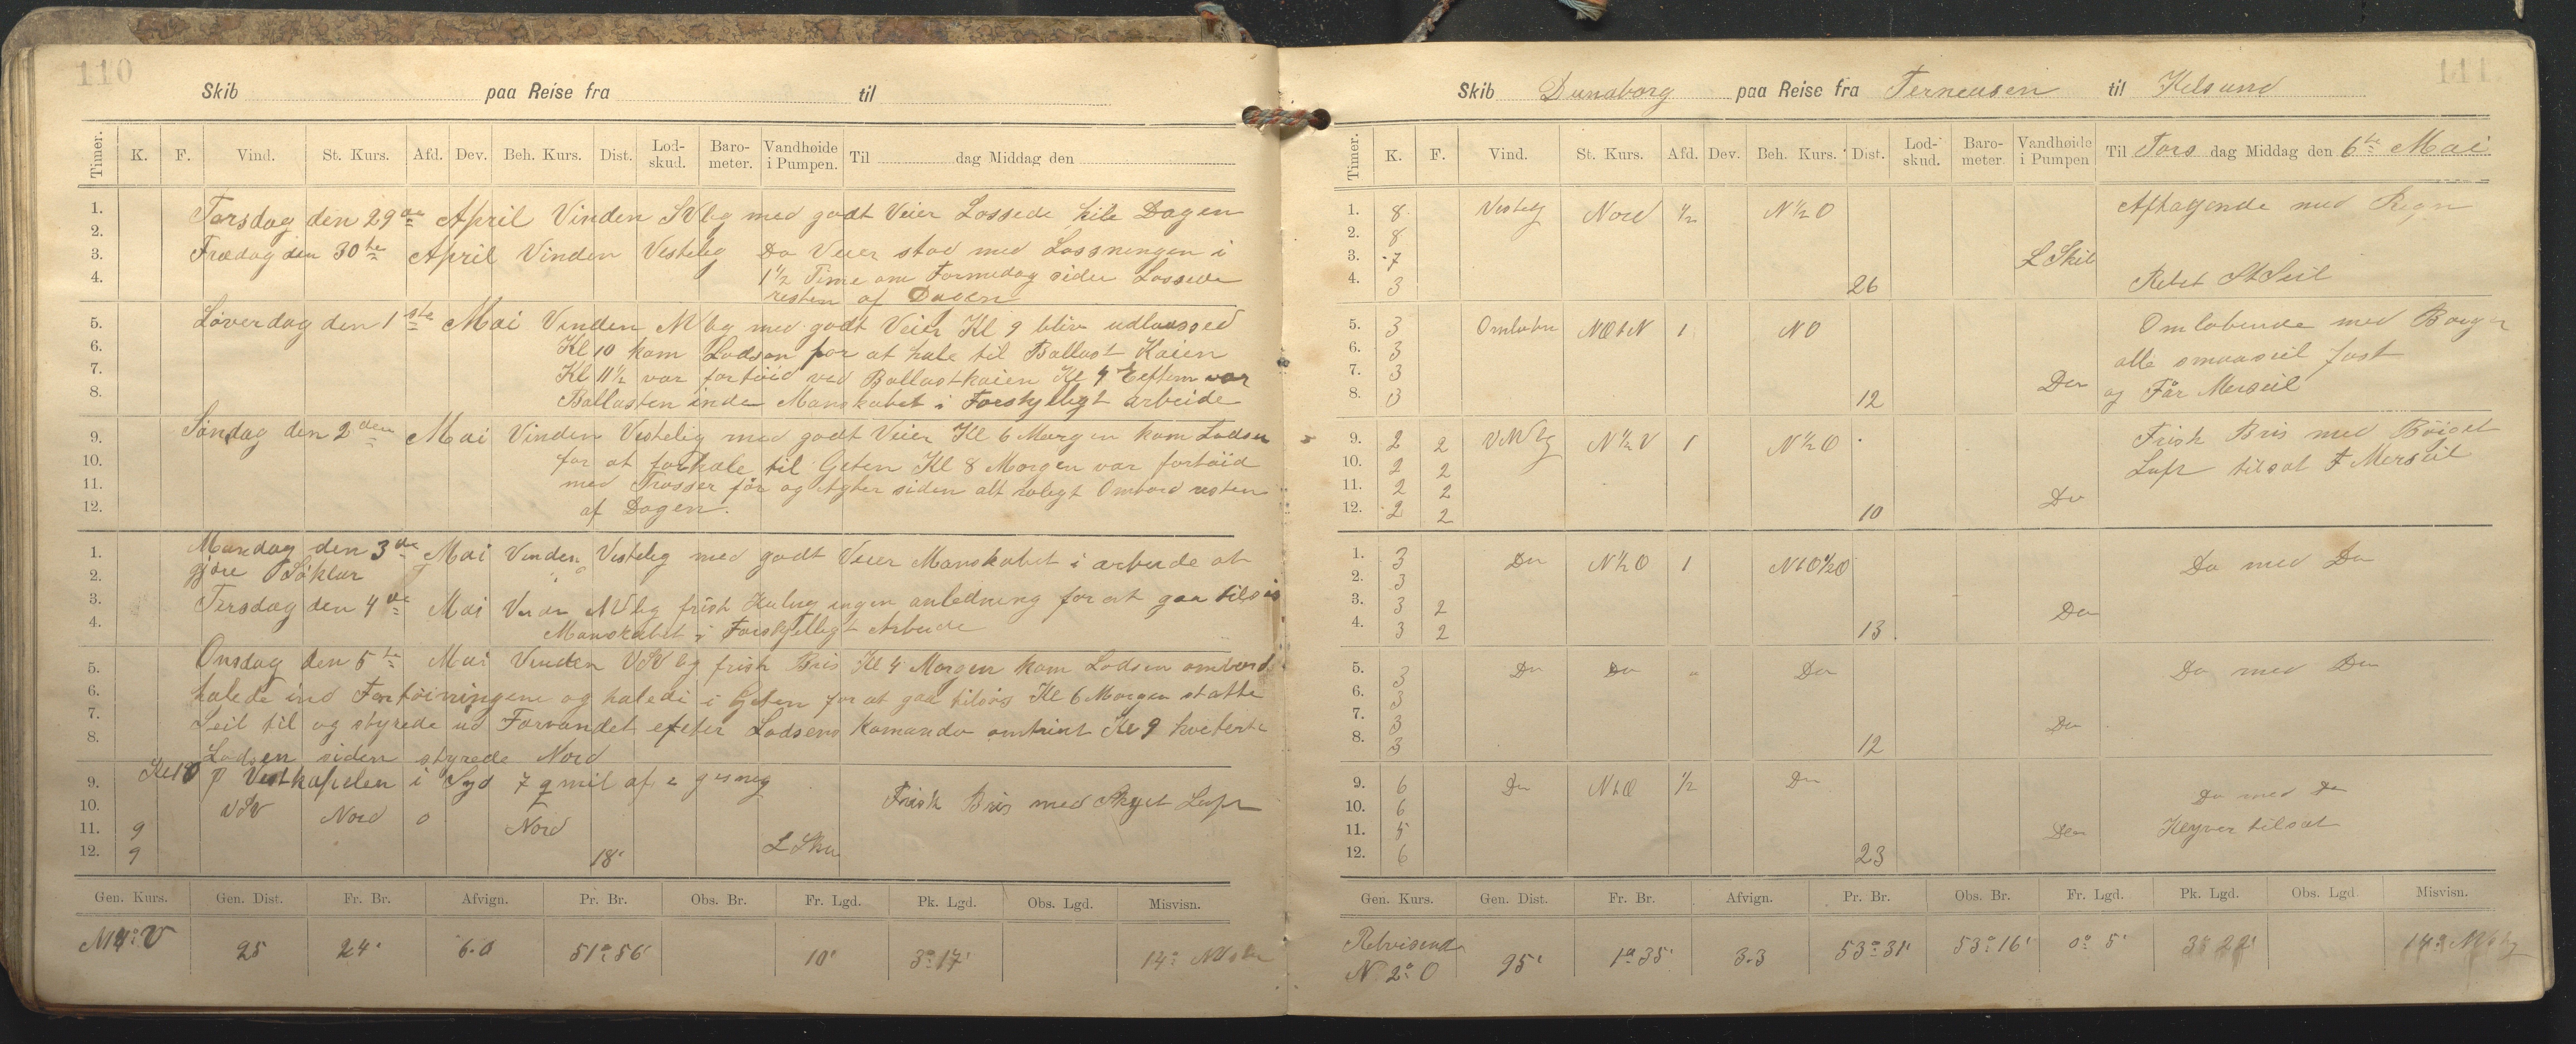 110
Skib paa Reise fra til
Timer. K. F. Vind. St. Kurs. Afd. Dev. Beh. Kurs. Dist. Lod-skud. Baro-meter. Vandhøide i Pumpen. Til dag Middag den
1. Torsdag den 29de April Vinden SV lig med godt Veier Lossede hile Dagen
2.
3. Fredag den 30te April Vinden Vestelig Do Veier stod med Losningen i
4. 1 1/2 Time om Formedag siden Lossede
resten af Dagen
5. Løverdag den 1ste Mai Vinden NV lig med godt Veier Kl 9 blev udlossed
6. Kl 10 kom Lodsen for at hale til Ballast Kaien
7. Kl 11 1/2 var fortöid ved Ballastkaien Kl 4 Eftem var
8. Ballasten inde Manskabet i Forskjelligt arbeide
9. Søndag den 2den Mai Vinden Vestelig med godt Veier Kl 6 Morgen kom Lodsen
10. for at forhale til Geten Kl 8 Morgen var fortöid
11. med Trosser før og Agter siden alt rolegt Ombord resten
12. af Dagen.
1. Mandag den 3de Mai Vinden Vestelig med godt Veier Manskabet i arbeide at
2. gjøre Söklar
3. Tirsdag den 4de Mai Vinden NV lig frisk Kuling ingen anledning for at gaa tilsøs
4. Manskabet i Forskjelligt Arbeide
5. Onsdag den 5te Mai Vinden VSV lig frisk Bris Kl 4 Morgen kom Lodsen ombord
6. halede ind Fortöiningene og halede i Geten for at gaa tilsøs Kl 6 Morgen statte
7. Seil til og styrede ud Farvandet efter Lodsens Komando omtrint Kl 9 kveterte
8. Lodsen siden styrede Nord
9. Kl 10 p Vestkapelen i Syd 7 q mil af
10. VSV Nord 0 Nord Frisk Bris med Skyet Luft
11. 9
12. 9 18' L Sku
Gen. Kurs. Gen. Dist. Fr. Br. Afvign. Pr. Br. Obs. Br. Fr. Lgd. Pk. Lgd. Obs. Lgd. Misvisn.
25 24' 6.0 51° 56' 10' 3° 17' 14°
111
Skib Dunaborg paa Reise fra Terneusen til Kilsund
Timer. K. F. Vind. St. Kurs. Afd. Dev. Beh. Kurs. Dist. Lod-skud. Baro-meter. Vandhøide i Pumpen Til Tors dag Middag den 6te Mai
1. 8 Vestelg Nord 1/2 N 1/2 O Aftagende med Regn
2. 8
3. 7 L Skib
4. 3 26 Rebet St Seil
5. 3 Omlobn NOtN 1 NO Omlobende med Boyger
6. 3 alle smaaseil fast
7. 3 Do
8. 3 12 og Får Merseil
9. 2 2 VNV lg N 1/2 V 1 N 1/2 O Frisk Bris med Böiget
10. 2 2 Luft tilsat F Merseil
11. 2 2 Do
12. 2 2 10
1. 3 Do N 1/2 O 1 NtO 1/2 O Do med Do
2. 3
3. 3 2 Do
4. 3 2 13
5. 3 Do Do " Do Do med Do
6. 3
7. 3 Do
8. 3 12
9. 6 Do NtO 1/2 Do Do med Do
10. 6
11. 5 Do Klyver tilsat
12. 6 23
Gen. Kurs. Gen. Dist. Fr. Br. Afvign. Pr. Br. Obs. Br. Fr. Lgd. Pk. Lgd. Obs. Lgd. Misvisn.
Retvisende
N 2° O 95' 1° 35' 3.3 53° 31' 53° 16' 0° 5' 3° 22' 14°